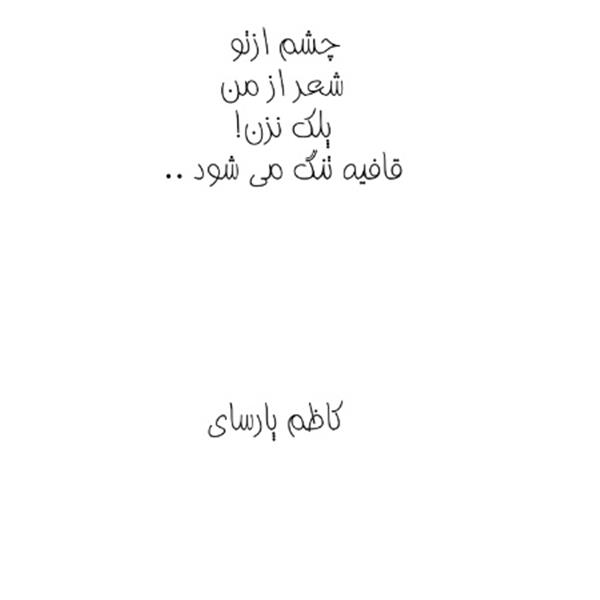 چشم ازتو
شعر از من
پلک نزن!
قافیه تنگ می شود ..
کاظم پارسای